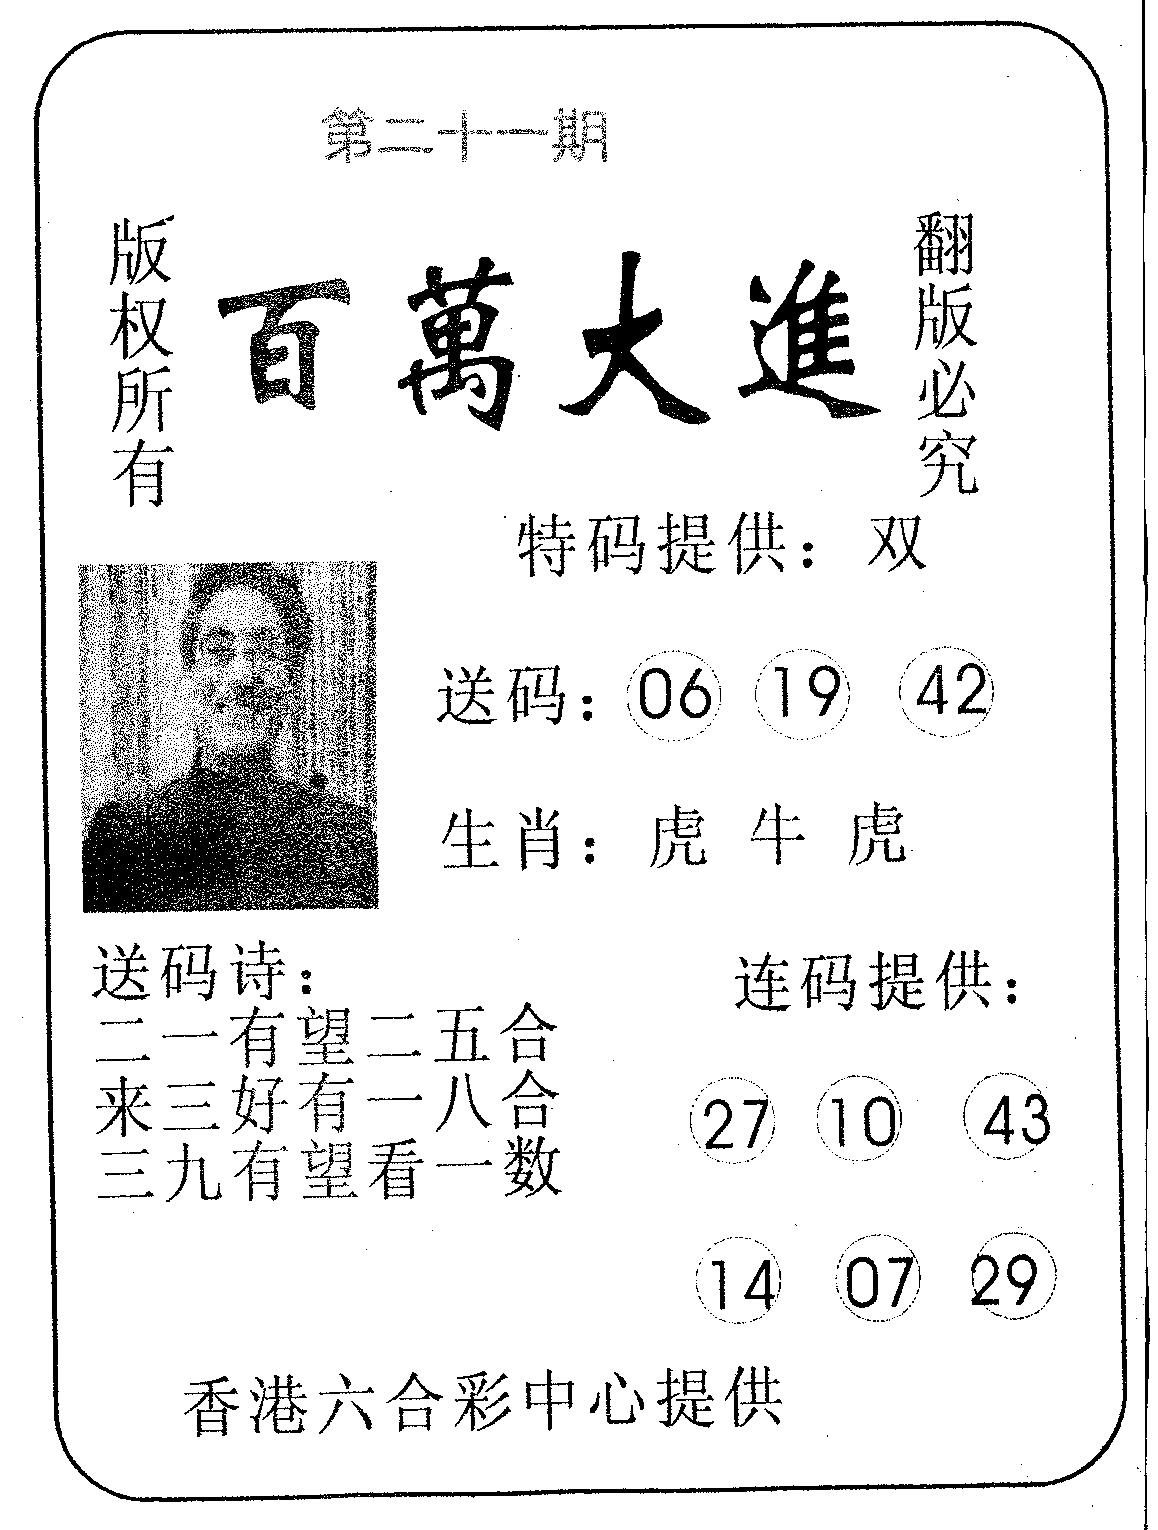 第二十一期
版权所有
百萬大進
翻版必究
特码提供：双
送码：06 19 42
生肖：虎 牛 虎
送码诗：
二一有望二五合
来三好有一八合
三九有望看一数
连码提供：
27 10 43
14 07 29
香港六合彩中心提供